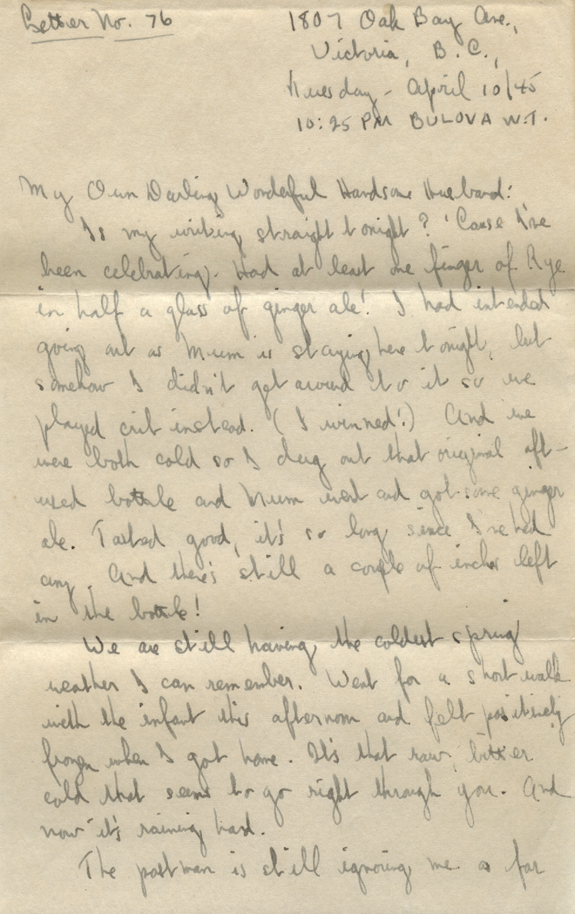 Letter No. 76
1807 Oak Bay Ave.,
Victoria, B.C.,
Tuesday - April 10/45
10:25 PM BULOVA W.T.
My Own Darling Wonderful Handsome Husband:
Is my writing straight tonight? 'Cause I've
been celebrating. Had at least one finger of Rye
in half a glass of ginger ale! I had intended
going out as Mum is staying here tonight, but
somehow I didn't get around to it so we
played crib instead. (I winned!) And we
were both cold so I dug out that original oft-
used bottle and Mum went and got some ginger
ale. Tasted good, it's so long since I've had
any. And there's still a couple of inches left
in the bottle!
We are still having the coldest spring
weather I can remember. Went for a short walk
with the infant this afternoon and felt positively
frozen when I got home. It's that raw, bitter
cold that seems to go right through you. And
now it's raining hard.
The postman is still ignoring me as far